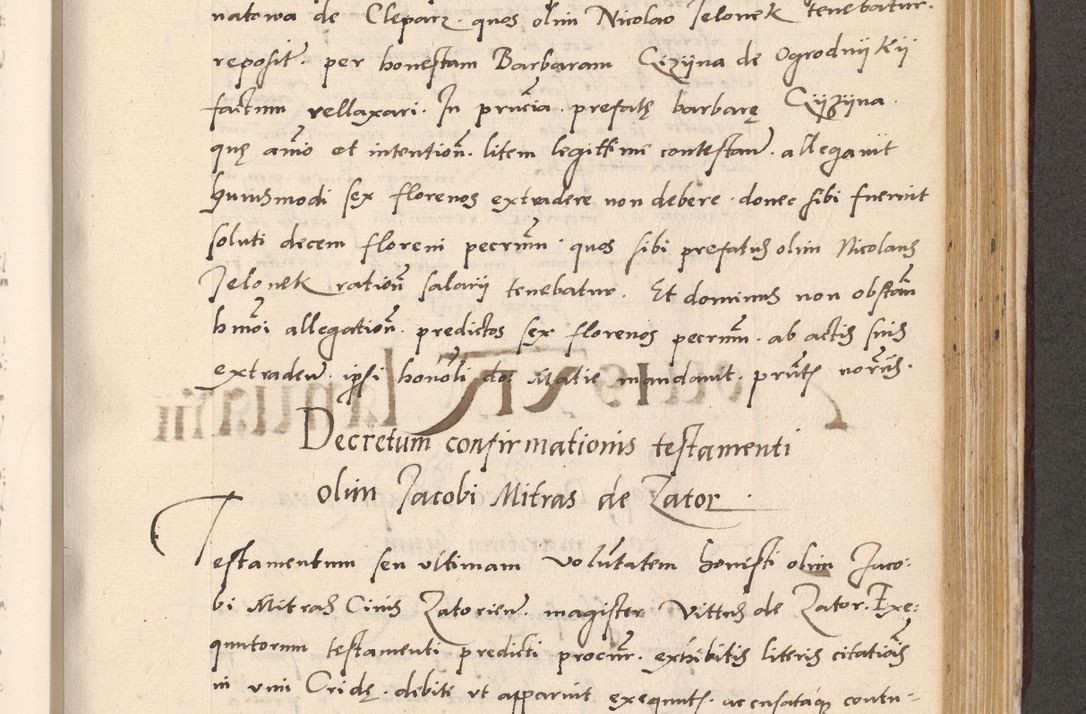 natowa de Cleparz. quos olim Nicolao Jelonek tenebatur.
reposit. per honestam Barbaram Czyzyna de Ogrodnijkij
factum rellaxari. In prncia. prefatę barbarę Czijzijna.
quę aīo et intention. litem legittime contestan. allegavit
huiusmodi sex florenos extradere non debere. donec sibi fuerint
soluti decem floreni pecrum. quos sibi prefatus olim Nicolaus
Jelonek ration salarij tenebatur. Et dominus non obstan
hmōi allegation. predictos sex florenos pecrum. ab actis suis
extraden. ipsi honoli do: Matie mandavit. prnts
Decretum confirmationis testamenti
olim Jacobi Mitras de Zator.
Testamentum seu ultimam voluntatem honesti olim Jaco:
bi Mitras Civis Zatorien. magister Vittus de Zator. Exe:
quutorum testamenti predicti procur. exhibitis literis citationis
in vim Cridę. debite ut apparuit exequuts. accusataque contu-